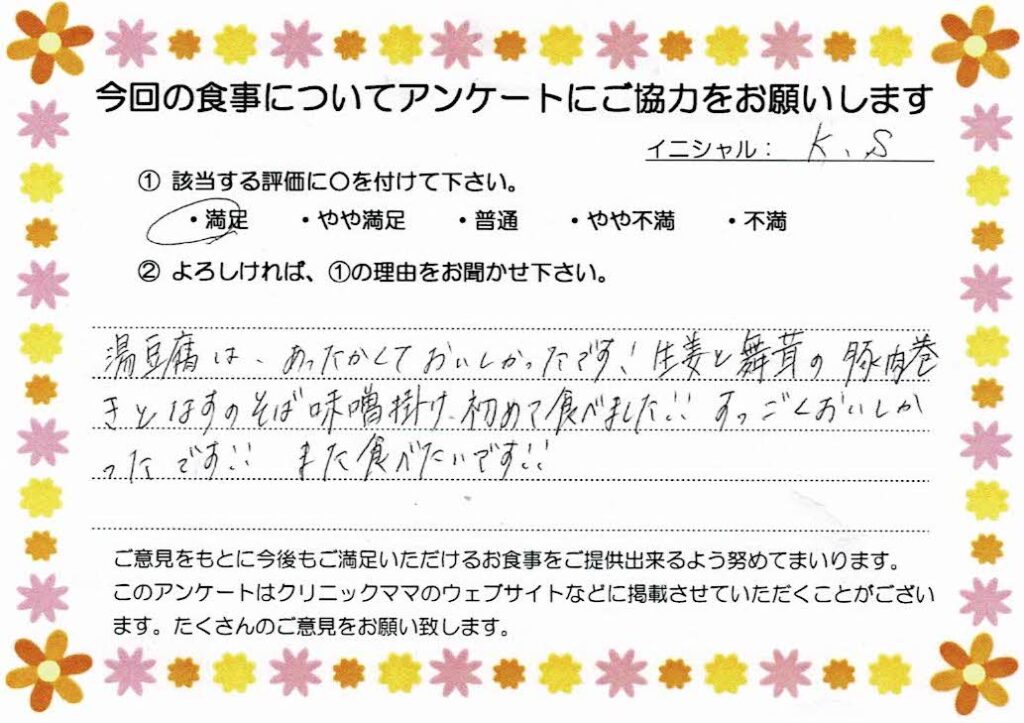 今回の食事についてアンケートにご協力をお願いします
イニシャル： K、S
① 該当する評価に〇を付けて下さい。
・満足 ・やや満足 ・普通 ・やや不満 ・不満
② よろしければ、①の理由をお聞かせ下さい。
湯豆腐は、あったかくておいしかったです! 生姜と舞茸の豚肉巻
きとなすのそば味噌掛け、初めて食べました!! すっごくおいしか
ったです!! また食べたいです!!
ご意見をもとに今後もご満足いただけるお食事をご提供出来るよう努めてまいります。
このアンケートはクリニックママのウェブサイトなどに掲載させていただくことがござい
ます。たくさんのご意見をお願い致します。